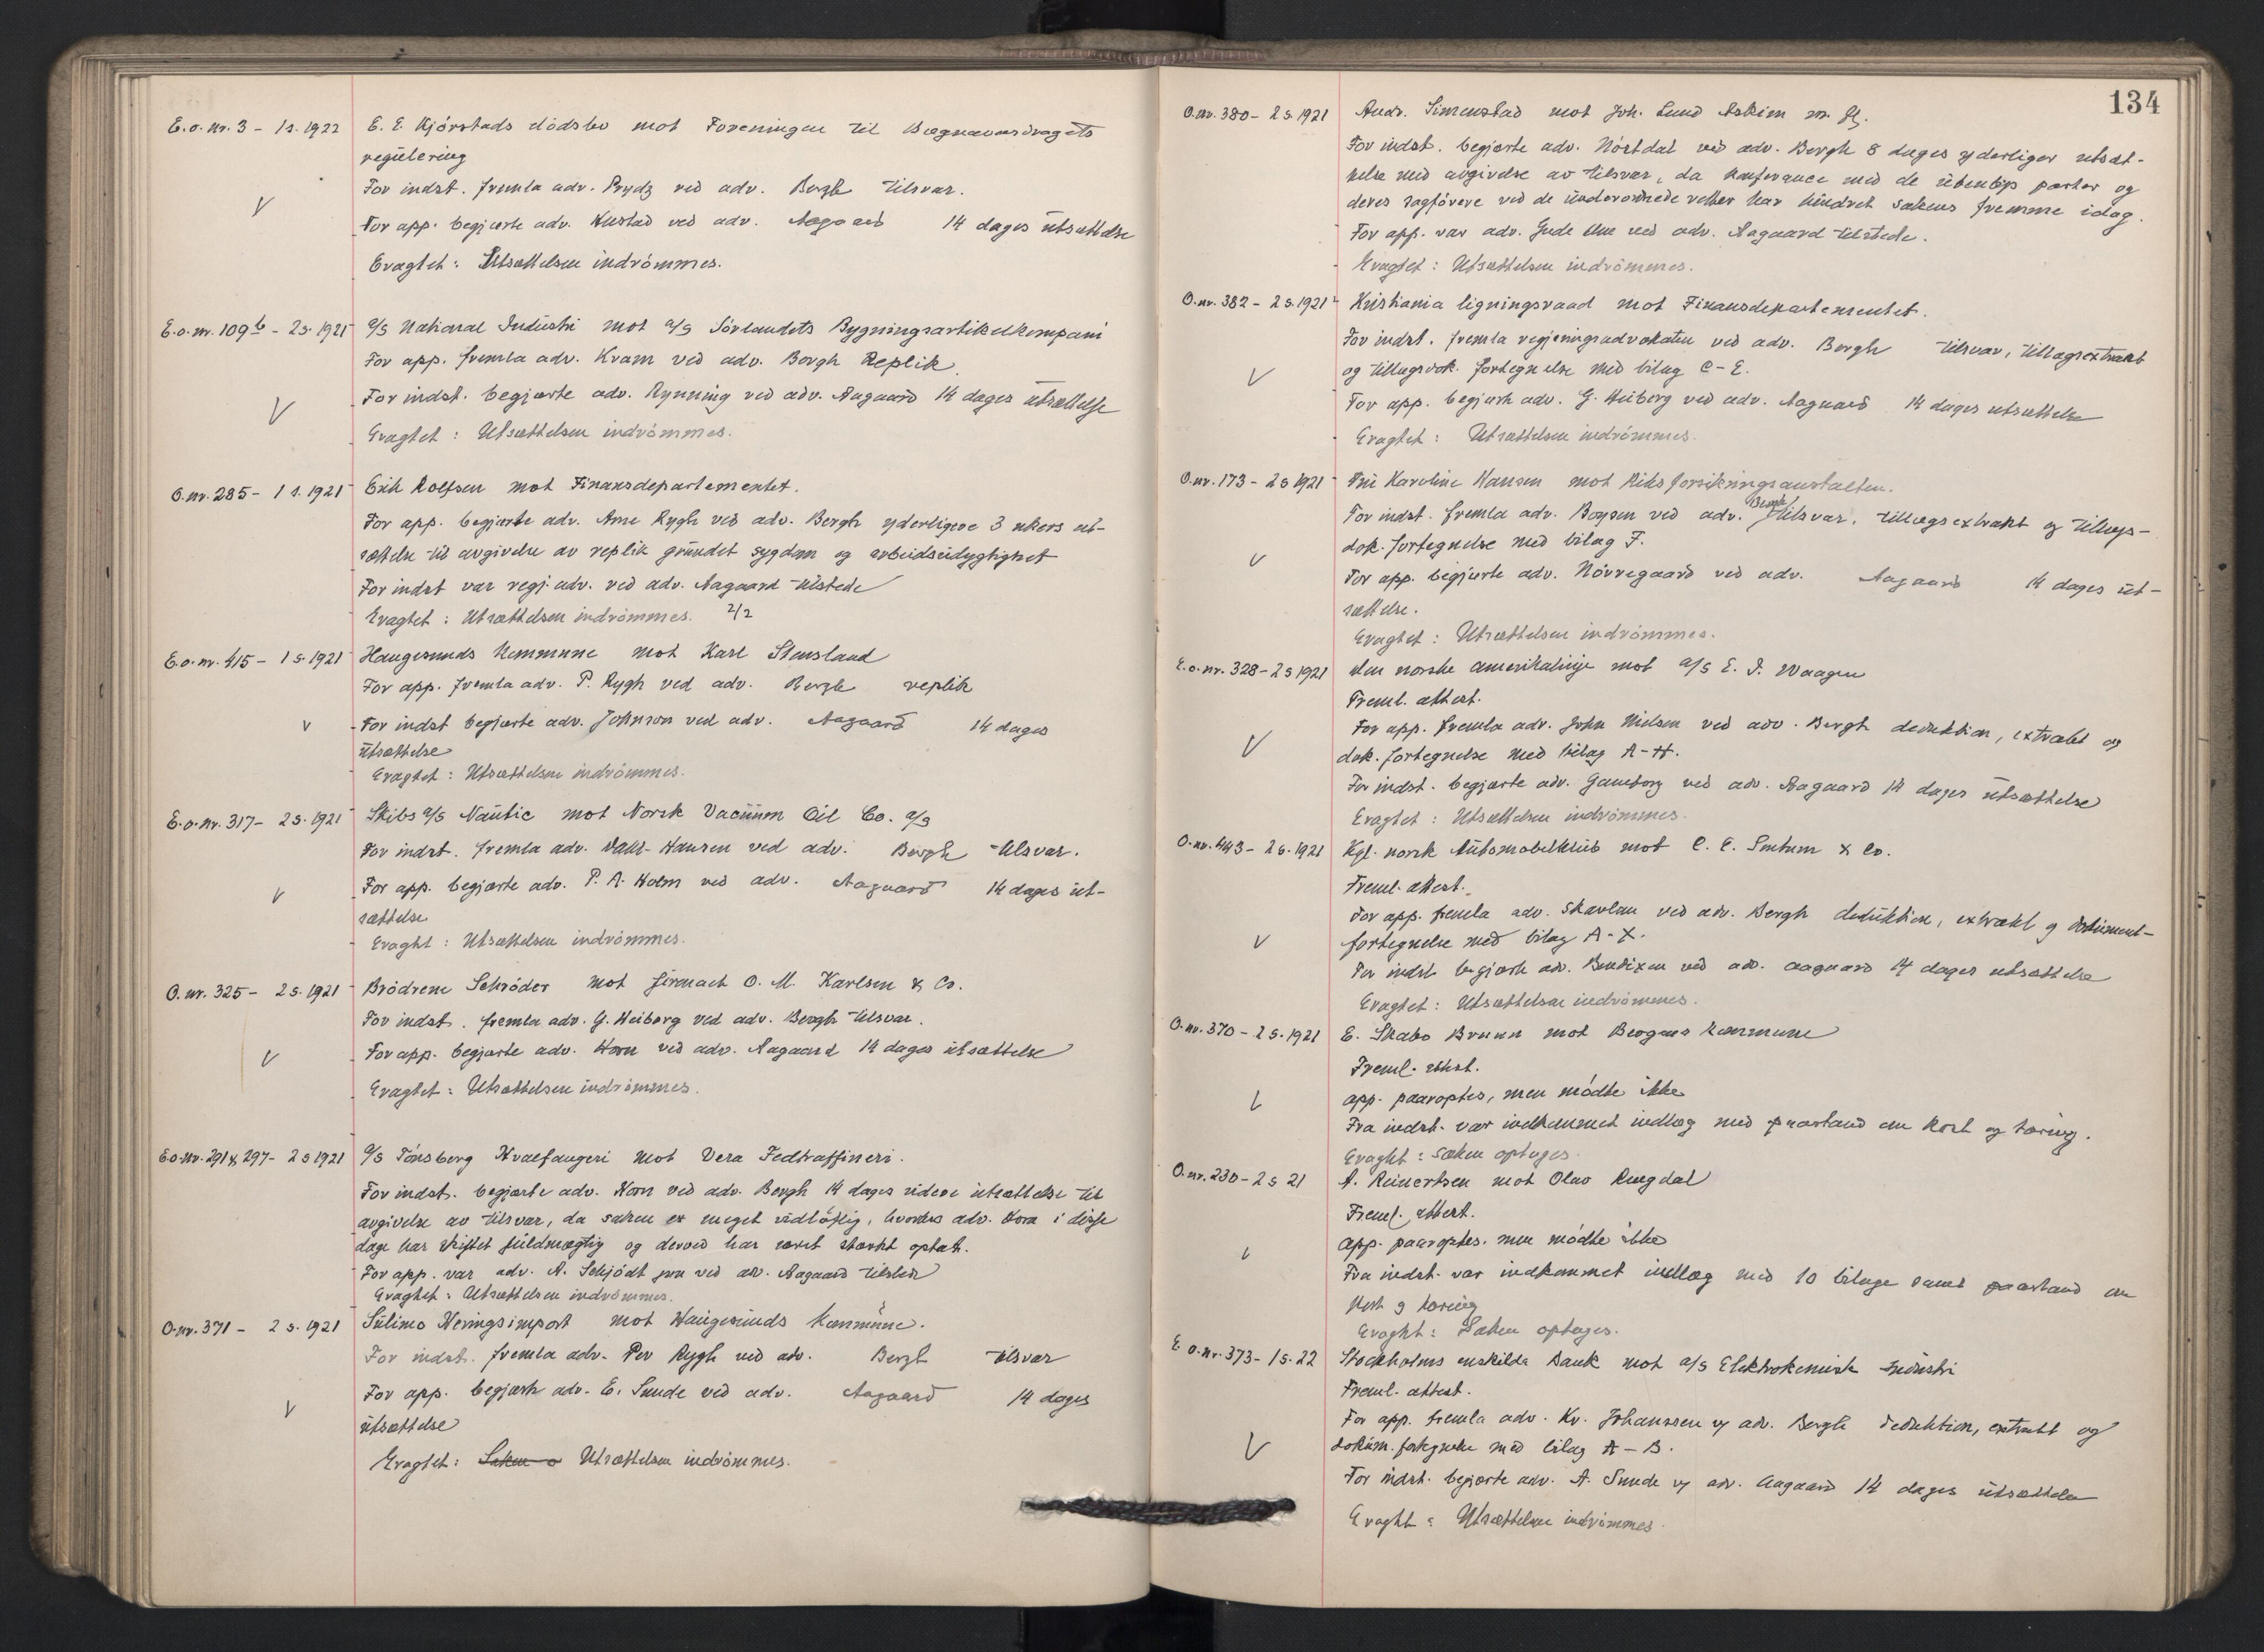 E.o.nr. 3 - 1s. 1922 E. E. Kjörstads dödsbo mot Foreningen til Bægnavasdragets
regulering
For indst. fremla adv. Prydz ved adv. Bergh tilsvar.
V For app. begjærte adv. Hustad ved adv. Aagaard 14 dages utsættelse
Eragtet: Utsættelsen indrömmes.
E.o.nr. 109b - 2s. 1921 a/s National Industri mot a/s Sörlandets Bygningsartikelkompani
For app. fremla adv. Kram ved adv. Bergh Replik.
V For indst. begjærte adv. Rynning ved adv. Aagaard 14 dages utsættelse
Eragtet: Utsættelsen indrömmes.
O.nr. 285 - 1s. 1921 Erik Rolfsen mot Finansdepartementet.
For app. begjærte adv. Arne Rygh ved adv. Bergh yderligere 3 ukers ut-
sættelse til avgivelse av replik grundet sygdom og arbeidsudygtighet
For indst var regj. adv. ved adv. Aagaard tilstede
Eragtet: Utsættelsen indrömmes. 2/2
E.o.nr. 415 - 1s. 1921 Haugesunds kommune mot Karl Stensland
For app. fremla adv. P. Rygh ved adv. Bergh replik
V For indst begjærte adv. Johnson ved adv. Aagaard 14 dages
utsættelse
Eragtet: Utsættelsen indrömmes.
E.o.nr. 317 - 2s. 1921 Skibs a/s Nautic mot Norsk Vacuum Oil Co. a/s
For indst. fremla adv. Dahl-Hansen ved adv. Bergh tilsvar.
V For app. begjærte adv. P. A. Holm ved adv. Aagaard 14 dages ut-
sættelse
Eragtet: Utsættelsen indrömmes.
O.nr. 325 - 2s. 1921 Brödrene Schröder mot firmaet O. M. Karlsen & Co.
For indst. fremla adv. G. Heiberg ved adv. Bergh tilsvar.
V For app. begjærte adv. Horn ved adv. Aagaard 14 dages utsættelse
Eragtet: Utsættelsen indrömmes.
E.o.nr. 291 & 297 - 2s 1921 a/s Tönsberg Hvalfangeri mot Vera Fedtraffineri.
For indst. begjærte adv. Horn ved adv. Bergh 14 dages videre utsættelse til
avgivelse av tilsvar, da saken er meget vidlöftig, hvorhos adv. Horn i disse
dage har skiftet fuldmægtig og derved har været stærkt optat.
For app. var adv. A. Schjödt jun ved adv. Aagaard tilstede
Eragtet: Utsættelsen indrömmes.
O.nr. 371 - 2s. 1921 Sulimo Heringsimport mot Haugesunds kommune.
For indst. fremla adv. Per Rygh ved adv. Bergh tilsvar
V For app. begjærte adv. E. Sunde ved adv. Aagaard 14 dages
utsættelse
Eragtet: Saken o Utsættelsen indrömmes.
134
O.nr. 380 - 2s. 1921 Andr. Simenstad mot Joh. Lund Askim m. fl.
For indst. begjærte adv. Nörtdal ved adv. Bergh 8 dages yderligere utsæt-
telse med avgivelse av tilsvar, da konferance med de utenbys parter og
deres sagförere ved de underordnede retter har hindret sakens fremme idag.
For app. var adv. Gude ved adv. Aagaard tilstede.
Eragtet: Utsættelsen indrömmes.
O.nr. 382 - 2s. 1921 Kristiania ligningsraad mot Finansdepartementet.
For indst. fremla regjeringsadvokaten ved adv. Bergh tilsvar, tillægsextrakt
V og tillægsdok. fortegnelse med bilag C-E.
For app. begjærte adv. G. Heiberg ved adv. Aagaard 14 dages utsættelse
Eragtet: Utsættelsen indrömmes.
O.nr. 173 - 2s 1921 Fru Karoline Hansen mot Riksforsikringsanstalten.
For indst. fremla adv. Boysen ved adv. Bergh tilsvar, tillægsextrakt og tillægs-
V dok. fortegnelse med bilag F.
For app. begjærte adv. Nörregaard ved adv. Aagaard 14 dages ut-
sættelse.
Eragtet: Utsættelsen indrömmes.
E.o.nr. 328 - 2s 1921 Den norske amerikalinje mot a/s E. I. Waagen
Freml. attest.
For app. fremla adv. John Nielsen ved adv. Bergh deduktion, extrakt og
V dok. fortegnelse med bilag A-H.
For indst. begjærte adv. Ganeborg ved adv. Aagaard 14 dages utsættelse
Eragtet: Utsættelsen indrömmes.
O.nr. 443 - 2s. 1921 Kgl. norsk Automobilklub mot C. E. Sontum & Co.
Freml. attest.
For app. fremla adv. Skavlan ved adv. Bergh deduktion, extrakt og dokument-
V fortegnelse med bilag A-X.
For indst. begjærte adv. Bendixen ved adv. Aagaard 14 dages utsættelse
Eragtet: Utsættelsen indrömmes.
O.nr. 370 - 2s. 1921 E. Skabo Bruun mot Bergens kommune
Freml. attest.
V app. paaroptes, men mödte ikke
Fra indst. var indkommet indlæg med paastand om kost og tæring.
Eragtet: Saken optages.
O.nr. 230 - 2s 21 A. Reinertsen mot Olav Ringdal
Freml. attest.
V app. paaroptes. men mödte ikke
Fra indst. var indkommet indlæg med 10 bilage samt paastand om
kost og tæring
Eragtet: Saken optages.
E o.nr. 373 - 1s. 22 Stockholms enskilda Bank mot a/s Elektrokemisk Industri
Freml. attest.
For app. fremla adv. Kr. Johanssen v/ adv. Bergh deduktion, extrakt og
V dokum. fortegnelse med bilag A-B.
For indst. begjærte adv. A. Sunde v/ adv. Aagaard 14 dages utsættelse
Eragtet: Utsættelsen indrömmes.